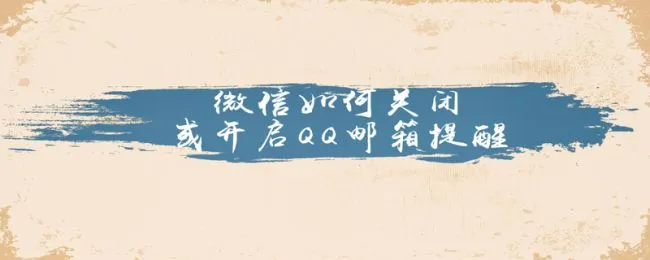 微信如何关闭
或开启QQ邮箱提醒